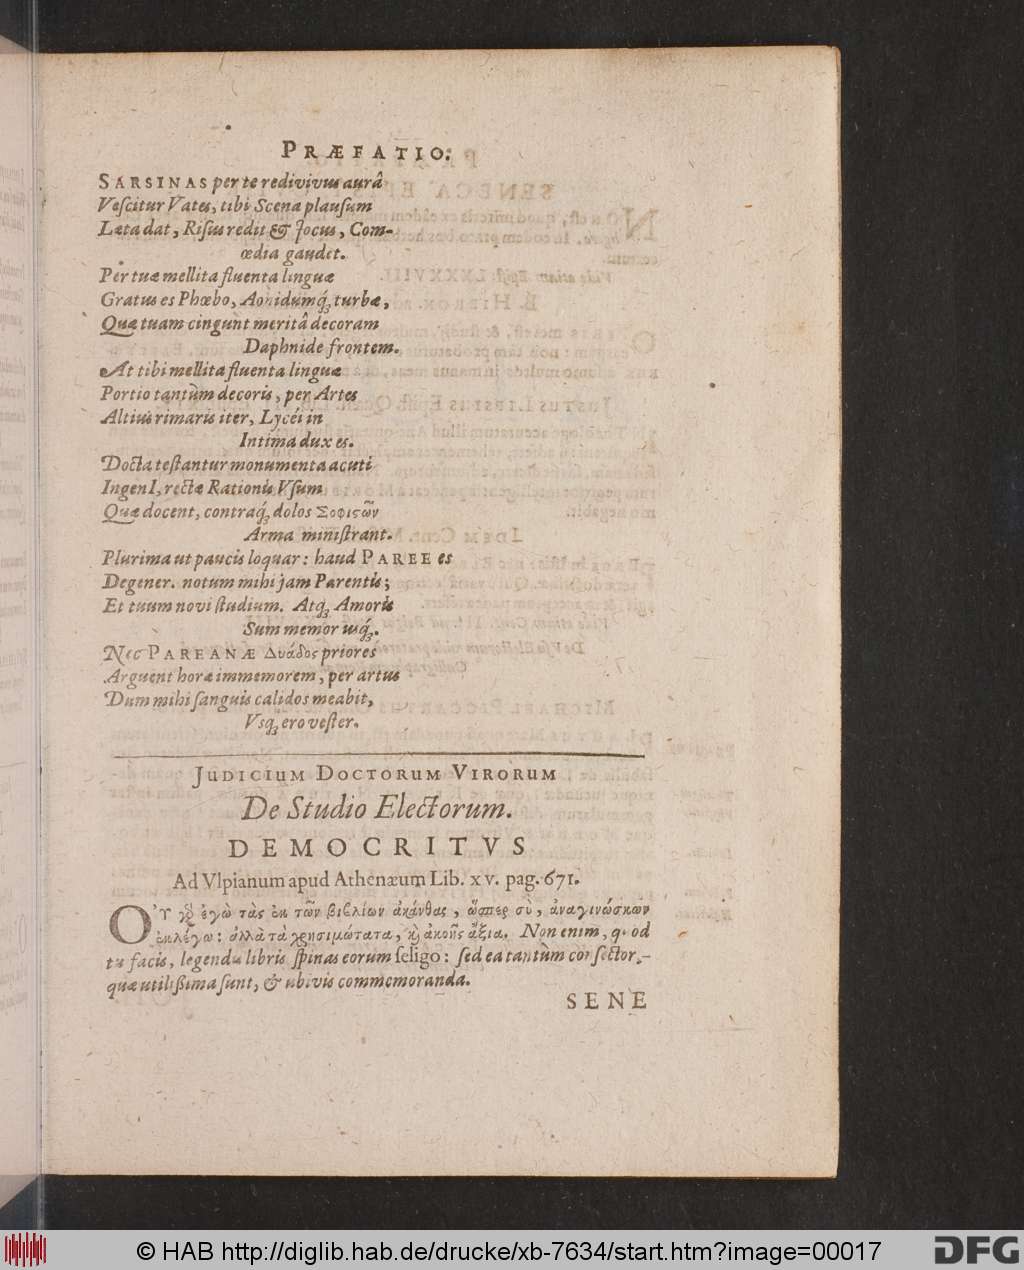 PRÆFATIO.
SARSINAS per te redivivus aurâ
Vescitur Vates, tibi Scena plausum
Læta dat, Risus redit & Jocus, Com-
œdia gaudet.
Per tuæ mellita fluenta linguæ
Gratus es Phœbo, Aonidumq́; turbæ,
Quæ tuam cingunt meritâ decoram
Daphnide frontem.
At tibi mellita fluenta linguæ
Portio tantùm decoris, per Artes
Altius rimaris iter, Lycéi in
Intima dux es.
Docta testantur monumenta acuti
IngenI, rectæ Rationis Vsum
Quæ docent, contraq́; dolos Σοφιςῶν
Arma ministrant.
Plurima ut paucis loquar: haud PAREE es
Degener. notum mihi jam Parentis;
Et tuum novi studium. Atq́; Amoris
Sum memor usq́;.
Nec PAREANÆ Δυάδος priores
Arguent horæ immemorem, per artus
Dum mihi sanguis calidos meabit,
Vsq́; ero vester.
JUDICIUM DOCTORUM VIRORUM
De Studio Electorum.
DEMOCRITVS
Ad Vlpianum apud Athenæum Lib. xv. pag. 671.
Οὐ γὸ ἐγὼ τὰς ἐκ τῶν βιβλίων ἀκάνθας, ὥσπερ σὺ, ἀναγινώσκων
ἐκλέγω: ἀλλὰ τὰ χρησιμώτατα, κὶ ἀκοῆς ἄξια. Non enim, quod
tu facis, legendis libris spinas eorum seligo: sed ea tantùm consector,
quæ utilißima sunt, & ubivis commemoranda.
SENE
© HAB http://diglib.hab.de/drucke/xb-7634/start.htm?image=00017
DFG